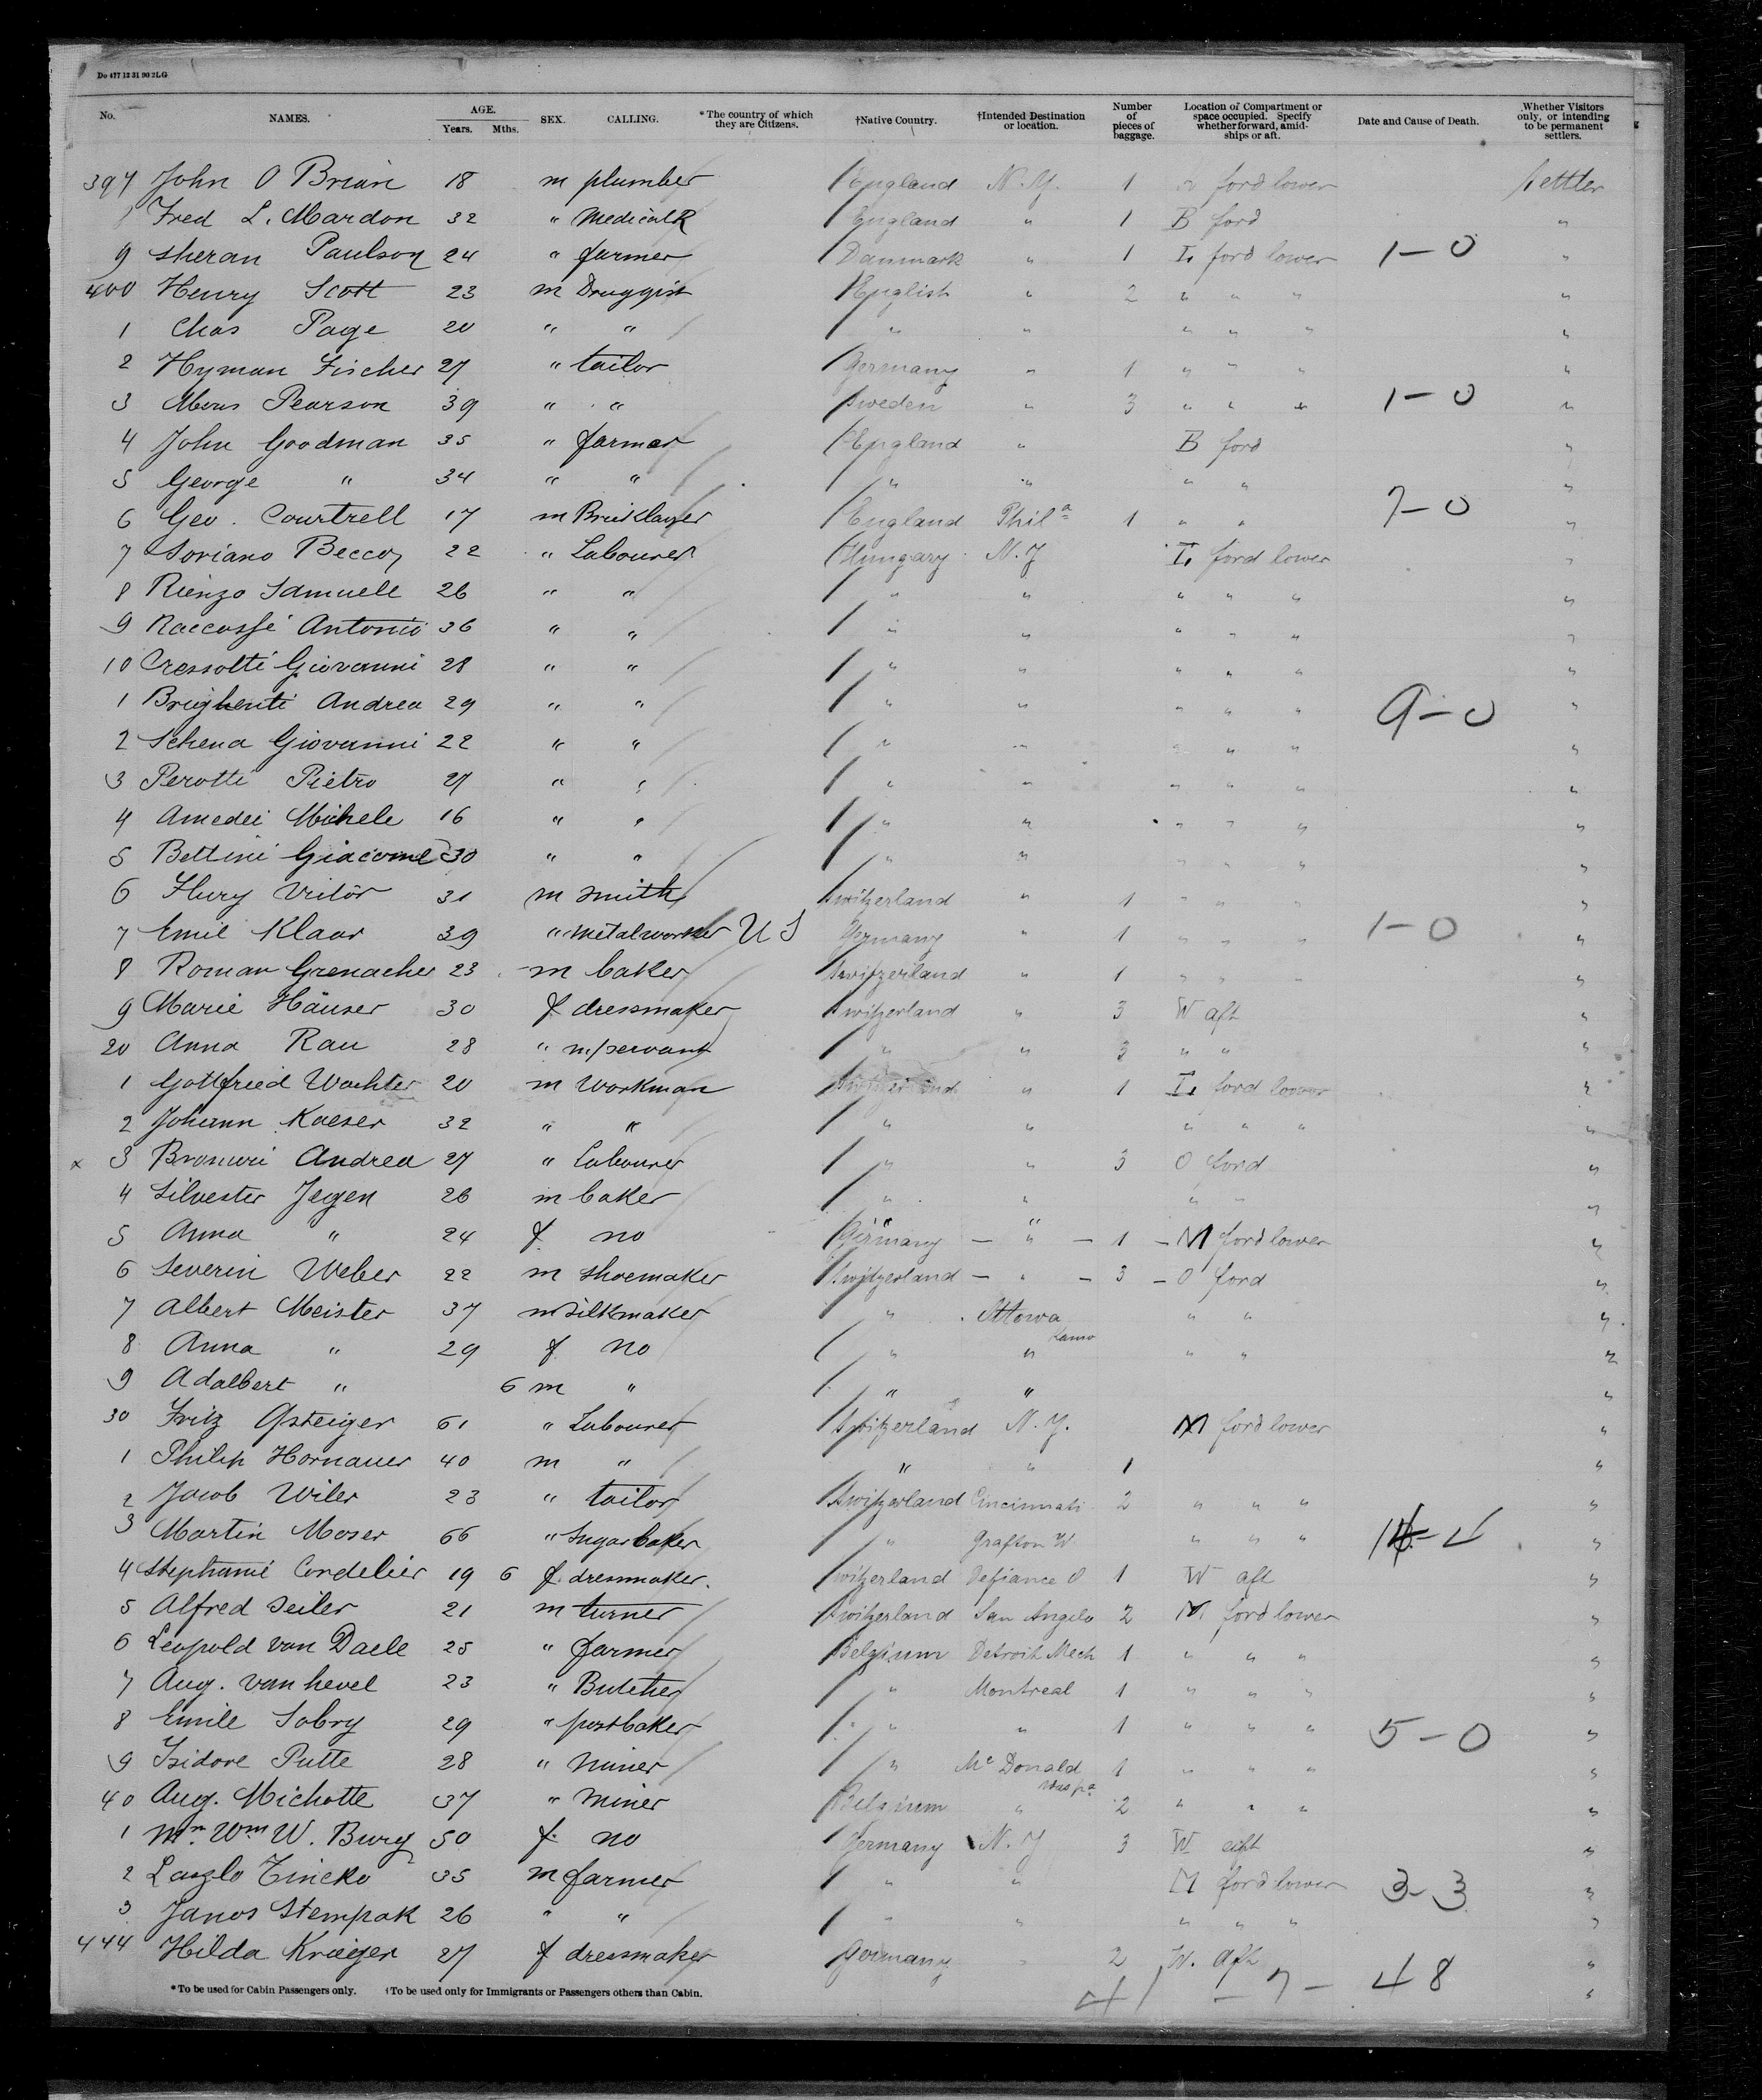 Do 477 12 31 90 2LG
No. NAMES. AGE. Years. Mths. SEX. CALLING. *The country of which they are Citizens. †Native Country. †Intended Destination or location. Number of pieces of baggage. Location of Compartment or space occupied. Specify whether forward, amidships or aft. Date and Cause of Death. Whether Visitors only, or intending to be permanent settlers.
397 John O Brian 18 m plumber England N.Y. 1 ford lower Settler
Fred L. Mardon 32 " Medical England " 1 B ford "
9 Paulson 24 " farmer Danmark " 1 I. ford lower 1-0 "
400 Henry Scott 23 m Druggist English " 2 " " " "
1 Chas Page 20 " " " " " " " "
2 Hyman Fischer 27 " tailor Germany " 1 " " " "
3 Pearson 39 " " Sweden " 3 " " " 1-0 "
4 John Goodman 35 " farmer England " B ford "
5 George " 34 " " " " " " "
6 Geo. Courtrell 17 m Bricklayer England Phila 1 " " 7-0 "
7 Soriano Beccoy 22 " Labourer Hungary N.Y I. ford lower "
8 Rienzo Samuele 26 " " " " " " " "
9 Antonio 36 " " " " " " " "
10 Cressotti Giovanni 28 " " " " " " " "
1 Brighenti Andrea 29 " " " " " " " 9-0 "
2 Schena Giovanni 22 " " " " " " " "
3 Perotti Pietro 27 " " " " " " " "
4 Amedei Michele 16 " " " " " " " "
5 Bettini Giacome 30 " " " " " " " "
6 Flury Vitor 31 m smith Switzerland " 1 " " " "
7 Emil Klaar 39 " metalworker U S Germany " 1 " " " 1-0 "
8 Roman Grenacher 23 m baker Switzerland " 1 " " " "
9 Marie Häuser 30 f dressmaker Switzerland " 3 W aft "
20 Anna Rau 28 " m/servant " " 3 " " "
1 Gottfried Wachter 20 m Workman Switzerland " 1 I. ford lower "
2 Johann Kaeser 32 " " " " " " " "
x 3 Andrea 27 " Labourer " " 3 O ford "
4 Silvester Jegen 26 m baker " " " " "
5 Anna " 24 f no Germany — " — 1 — M ford lower "
6 Severin Weber 22 m shoemaker Switzerland — " — 3 — O ford "
7 Albert Meister 37 m silkmaker " Ottowa " " "
Kans
8 Anna " 29 f no " " " " "
9 Adalbert " 6 m " " " "
30 Fritz Gsteiger 61 " Labourer Switzerland N.Y. M ford lower "
1 Philip Hornauer 40 m " " " 1 "
2 Jacob Wiler 23 " tailor Switzerland Cincinnati 2 " " " "
3 Martin Moser 66 " Sugarbaker " Grafton W. " " " "
4 Stephanie Cordelier 19 6 f. dressmaker. Switzerland Defiance O 1 W aft "
5 Alfred Seiler 21 m turner Switzerland San Angelo 2 M ford lower "
6 Leopold van Daele 25 " farmer Belgium Detroit Mech 1 " " " "
7 Aug. van hevel 23 " Butcher " Montreal 1 " " " "
8 Emile Sobry 29 " " " 1 " " " 5-0 "
9 Isidore Putte 28 " Miner " Mc Donald 1 " " " "
40 Aug. Michotte 37 " Miner Belgium " 2 " " " "
1 Wm W. Burg 50 f. no Germany N.Y 3 W aft "
2 Laszlo Tincko 35 m farmer " " M ford lower 3-3 "
3 Janos Stempak 26 " " " " " " " "
444 Hilda Krieger 27 f dressmaker Germany " 2 W. aft "
*To be used for Cabin Passengers only. †To be used only for Immigrants or Passengers others than Cabin.
41 - 7 - 48 "